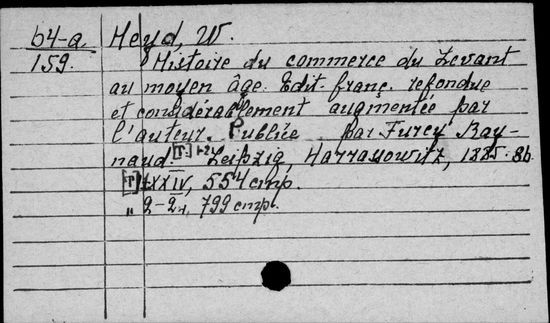 64-a. Heyd, W.
159. Histoire du commerce du Levant
au moyen âge. Edit. franç. refondue
et considérablement augmentée par
l'auteur. Publiée par Furcy Ray-
naud. [T.] 1-2. Leipzig, Harrassowitz, 1885-86.
[T] XXIV, 554 cmp.
" 2-2, 799 cmp.